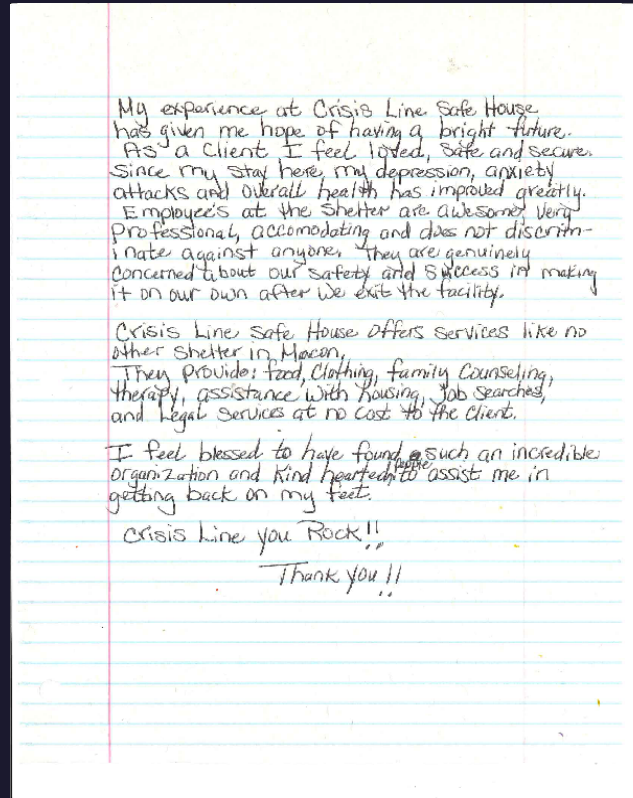 My experience at Crisis Line Safe House
has given me hope of having a bright future.
As a Client I feel loved, safe and secure.
Since my stay here, my depression, anxiety
attacks and overall health has improved greatly.
Employee's at the shelter are awesome, very
professional, accomodating and does not discrim-
inate against anyone. They are genuinely
concerned about our safety and success in making
it on our own after we exit the facility.
Crisis Line Safe House offers services like no
other shelter in Macon.
They provide: food, clothing, family counseling,
therapy, assistance with housing, job searches,
and Legal services at no cost to the client.
I feel blessed to have found such an incredible
organization and kind hearted people to assist me in
getting back on my feet.
Crisis Line you Rock!!
Thank you!!